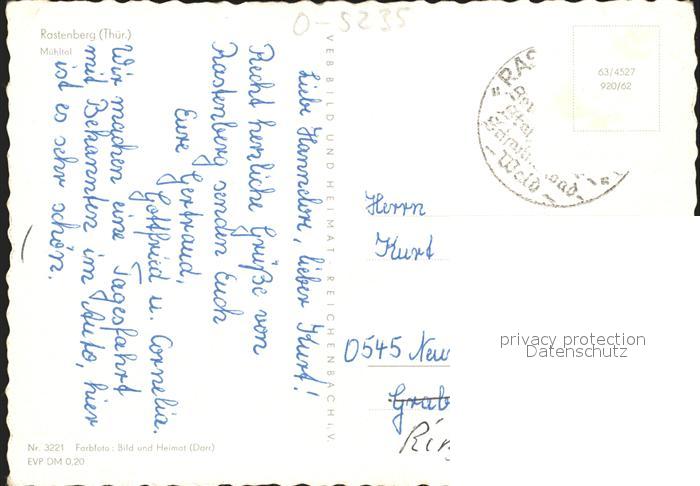 O-5235
Rastenberg (Thür.)
Mühltal
Liebe Hannelore, lieber Kurt!
Recht herzliche Grüße von
Rastenberg senden Euch
Eure Gertraud,
Gottfried u. Cornelia.
Wir machen eine Tagesfahrt
mit Bekannten im Auto, hier
ist es sehr schön.
VEB BILD UND HEIMAT · REICHENBACH I.V.
63/4527
920/62
"RAS
Wald
Herrn
Kurt
0545 Neu
Grab
Rin
privacy protection
Datenschutz
Nr. 3221 Farbfoto: Bild und Heimat (Darr)
EVP DM 0,20